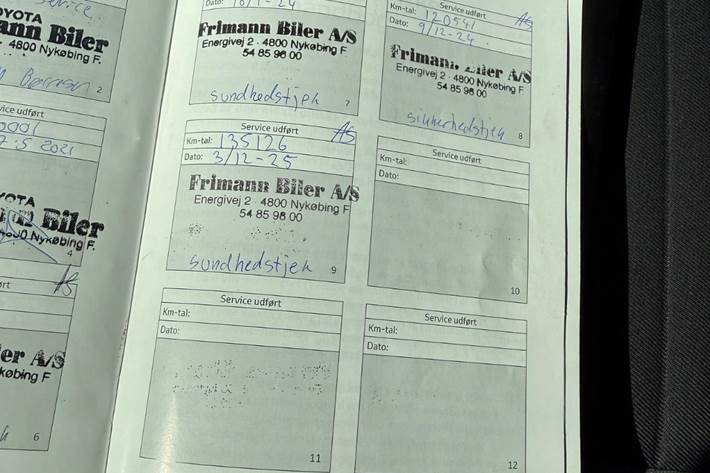 Service.
TOYOTA
nn Biler
4800 Nykøbing F.
2
Service udført
7.5 2021
Biler
Nykøbing F.
4
AS
er A/S
købing F
6
Dato:
Frimann Biler A/S
Energivej 2 · 4800 Nykøbing F
54 85 98 00
sundhedstjek
7
Service udført
Km-tal: 120541
AS
Dato: 9/12-24.
Frimann Biler A/S
Energivej 2 · 4800 Nykøbing F
54 85 98 00
sikkerhedstjek
8
Service udført
AS
Km-tal: 135126
Dato: 3/12-25
Frimann Biler A/S
Energivej 2 · 4800 Nykøbing F
54 85 98 00
sundhedstjek
9
Service udført
Km-tal:
Dato:
10
Service udført
Km-tal:
Dato:
11
Service udført
Km-tal:
Dato:
12